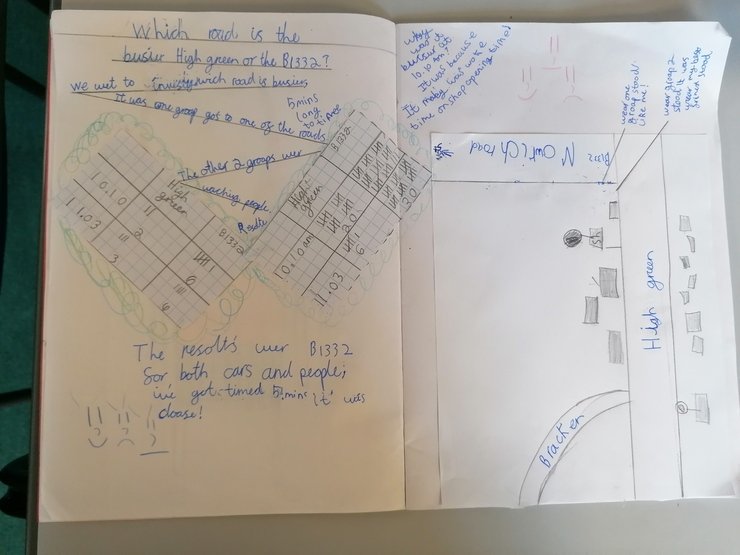 Which road is the
busier High green or the B1332?
we wet to which road is busiers
It was one group gos to one of the roads
5mins
long
to time
The other 2 groups wer
waching people.
Results
High
green
B1332
10.10
11.03
2
3
6
4
High
green
B1332
10.10am
11.03
20
6
30
The results wer B1332
for both cars and people;
we got timed 5.mins it was
cloase!
why
was it
busier at
10.10 am?
It was because
It matey was woke
time or shop opening times!
wear me
group stood
like me!
wear group 2
stood it was
year my best
friend stood
B1332
Norwich road
High green
Bracken